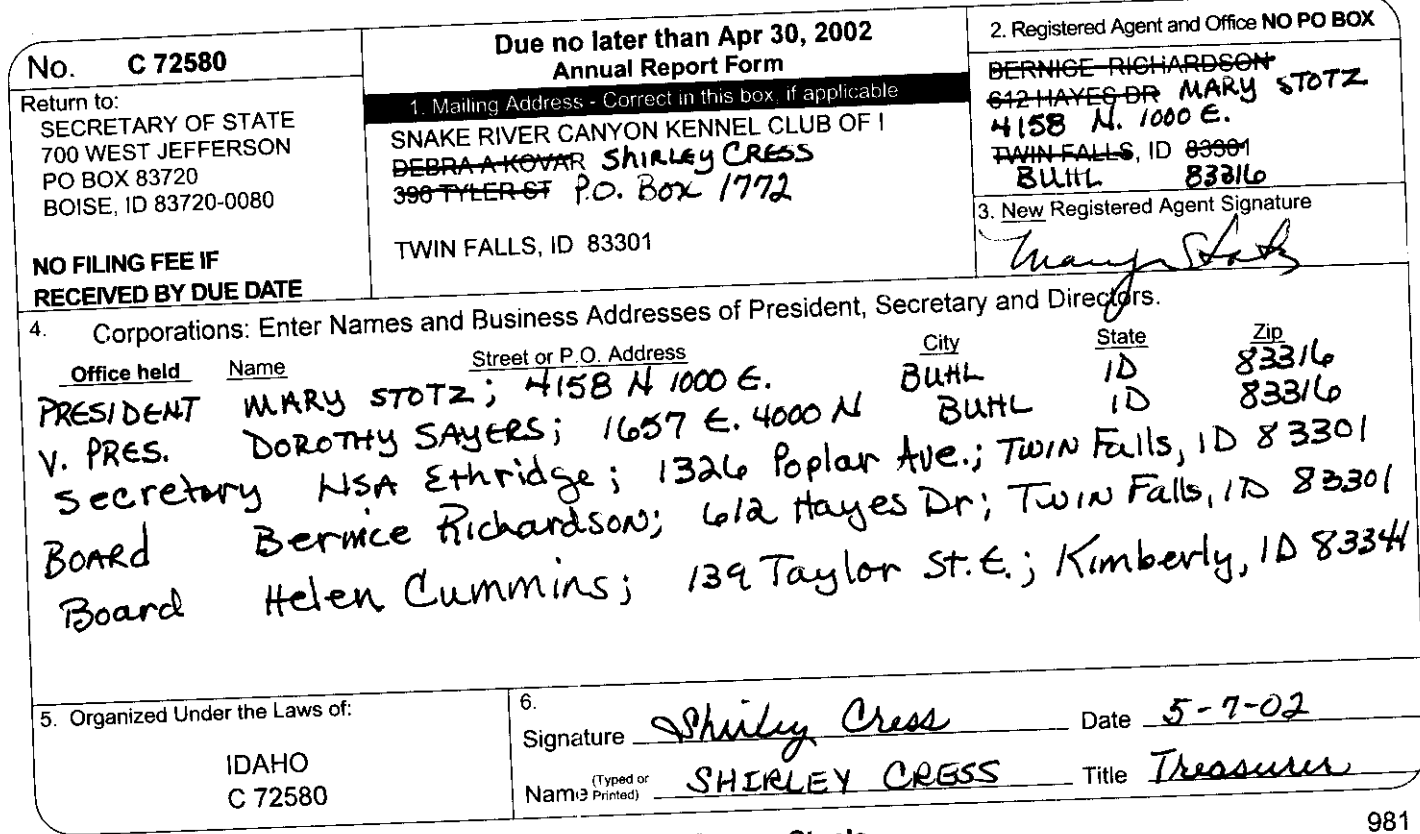 No. C 72580
Return to:
SECRETARY OF STATE
700 WEST JEFFERSON
PO BOX 83720
BOISE, ID 83720-0080
NO FILING FEE IF
RECEIVED BY DUE DATE
Due no later than Apr 30, 2002
Annual Report Form
1. Mailing Address - Correct in this box, if applicable
SNAKE RIVER CANYON KENNEL CLUB OF I
DEBRA A KOVAR Shirley CRESS
396 TYLER ST P.O. Box 1772
TWIN FALLS, ID 83301
2. Registered Agent and Office NO PO BOX
BERNICE RICHARDSON
612 HAYES DR MARY STOTZ
4158 N. 1000 E.
TWIN FALLS, ID 83301
BUHL 83316
3. New Registered Agent Signature
Mary Stotz
4. Corporations: Enter Names and Business Addresses of President, Secretary and Directors.
Office held Name Street or P.O. Address City State Zip
PRESIDENT MARY STOTZ; 4158 N 1000 E. BUHL ID 83316
V. PRES. DOROTHY SAYERS; 1657 E. 4000 N BUHL ID 83316
Secretary LISA Ethridge; 1326 Poplar Ave.; Twin Falls, ID 83301
BOARD Bernice Richardson; 612 Hayes Dr; Twin Falls, ID 83301
Board Helen Cummins; 139 Taylor St. E.; Kimberly, ID 83341
5. Organized Under the Laws of:
IDAHO
C 72580
6.
Signature Shirley Cress Date 5-7-02
Name (Typed or Printed) SHIRLEY CRESS Title Treasurer
981